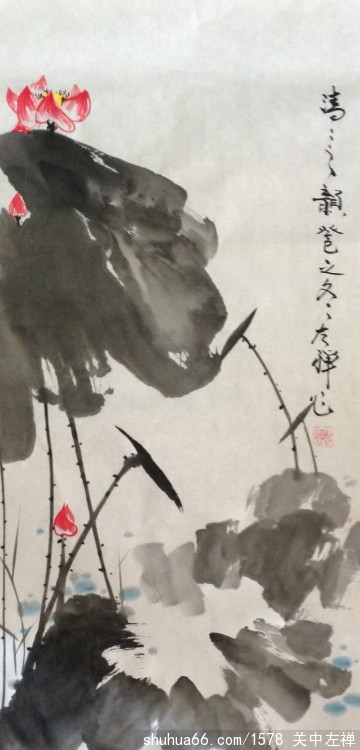 清〻之韻之冬〻左禅作
shuhua66.com/1578 关中左禅